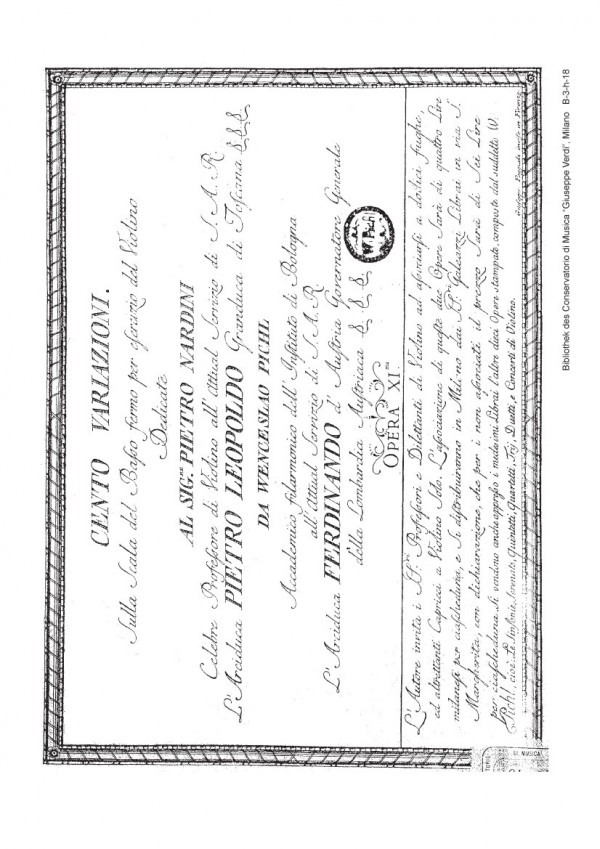 CENTO VARIAZIONI.
Sulla Scala del Baſso fermo per eſercizio del Violino
Dedicate
AL SIG.re PIETRO NARDINI
Celebre Profeſsore di Violino all'Attual Servizio di S. A. R
L'Arciduca PIETRO LEOPOLDO Granduca di Toſcana &&&
DA WENCESLAO PICHL
Accademico filarmonico dell'Inſtituto di Bologna
all'Attual Servizio di S. A. R
L'Arciduca FERDINANDO d'Auſtria Governatore Generale
della Lombardia Auſtriaca &&&
W. Pichl
OPERA XI.ma
L'Autore invita i SS.ri Profeſsori e Dilettanti di Violino ad aſsociarſi a dodici fughe,
ed altrettanti Capricci a Violino Solo. L'aſsociazione di queſte due Opere Sarà di quattro Lire
milaneſi per ciaſcheduna, e Si diſtribuiranno in Milano dai SS.ri Galeazzi Librai in via S.
Margherita, con dichiarazione, che per i non aſsociati il prezzo Sarà di Sei Lire
per ciaſcheduna. Si vendono anche appreſso i medeſimi Librai l'altre dieci Opere stampate, composte dal suddetto W.
Pichl, cioè Le Sinfonie, Serenate, Quintetti, Quartetti, Trj, Duetti, e Concerti di Violino.
DI MUSICA
Bibliothek des Conservatorio di Musica "Giuseppe Verdi", Milano B-3-h-18